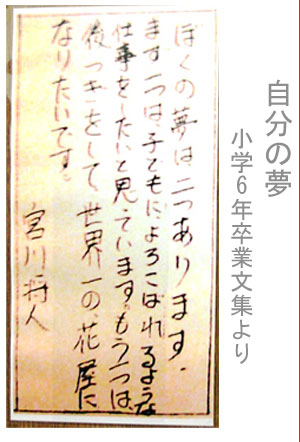 自分の夢
小学6年卒業文集より
ぼくの夢は二つあります。
まず一つは、子どもによろこばれるような
仕事をしたいと思っています。もう一つは、
後つぎをして、世界一の、花屋に
なりたいです。
宮川将人